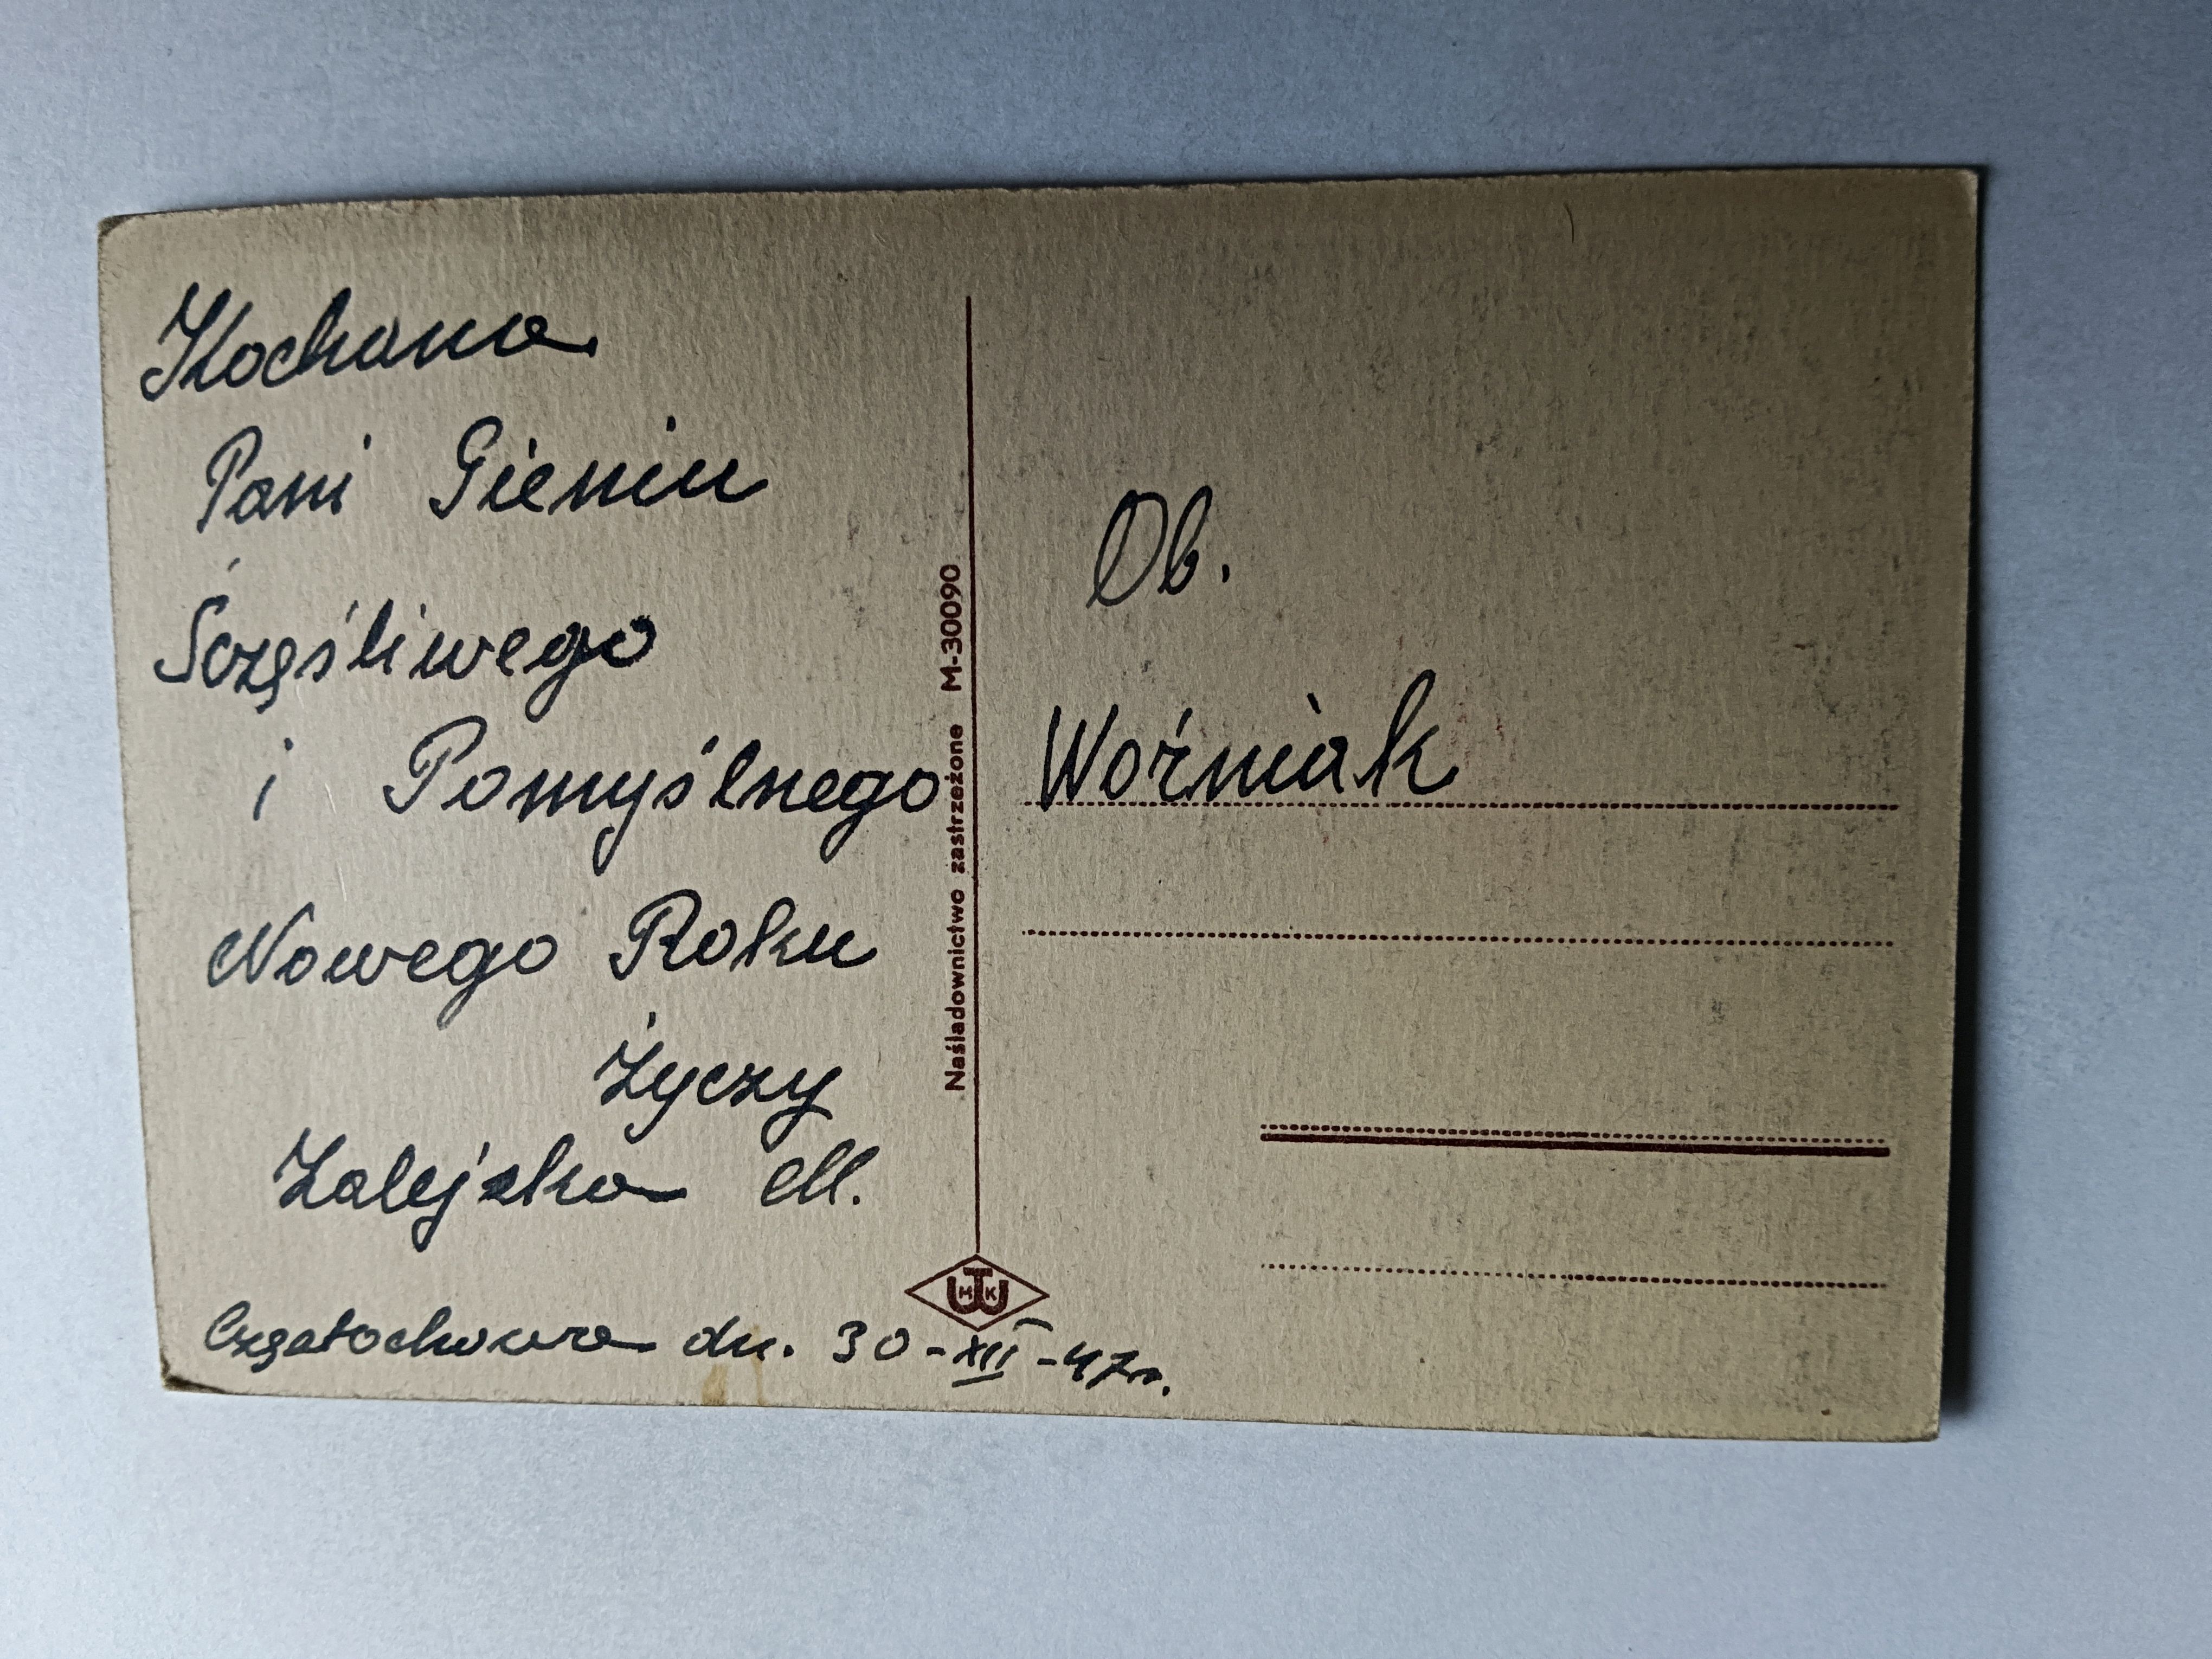 Kochana
Pani Gieniu
Sczęśliwego
i Pomyślnego
Nowego Roku
Życzy
Zalejska M.
Częstochowa dn. 30-XII-47r.
Naśladownictwo zastrzeżone M-30090
WT
M K
Ob.
Woźniak